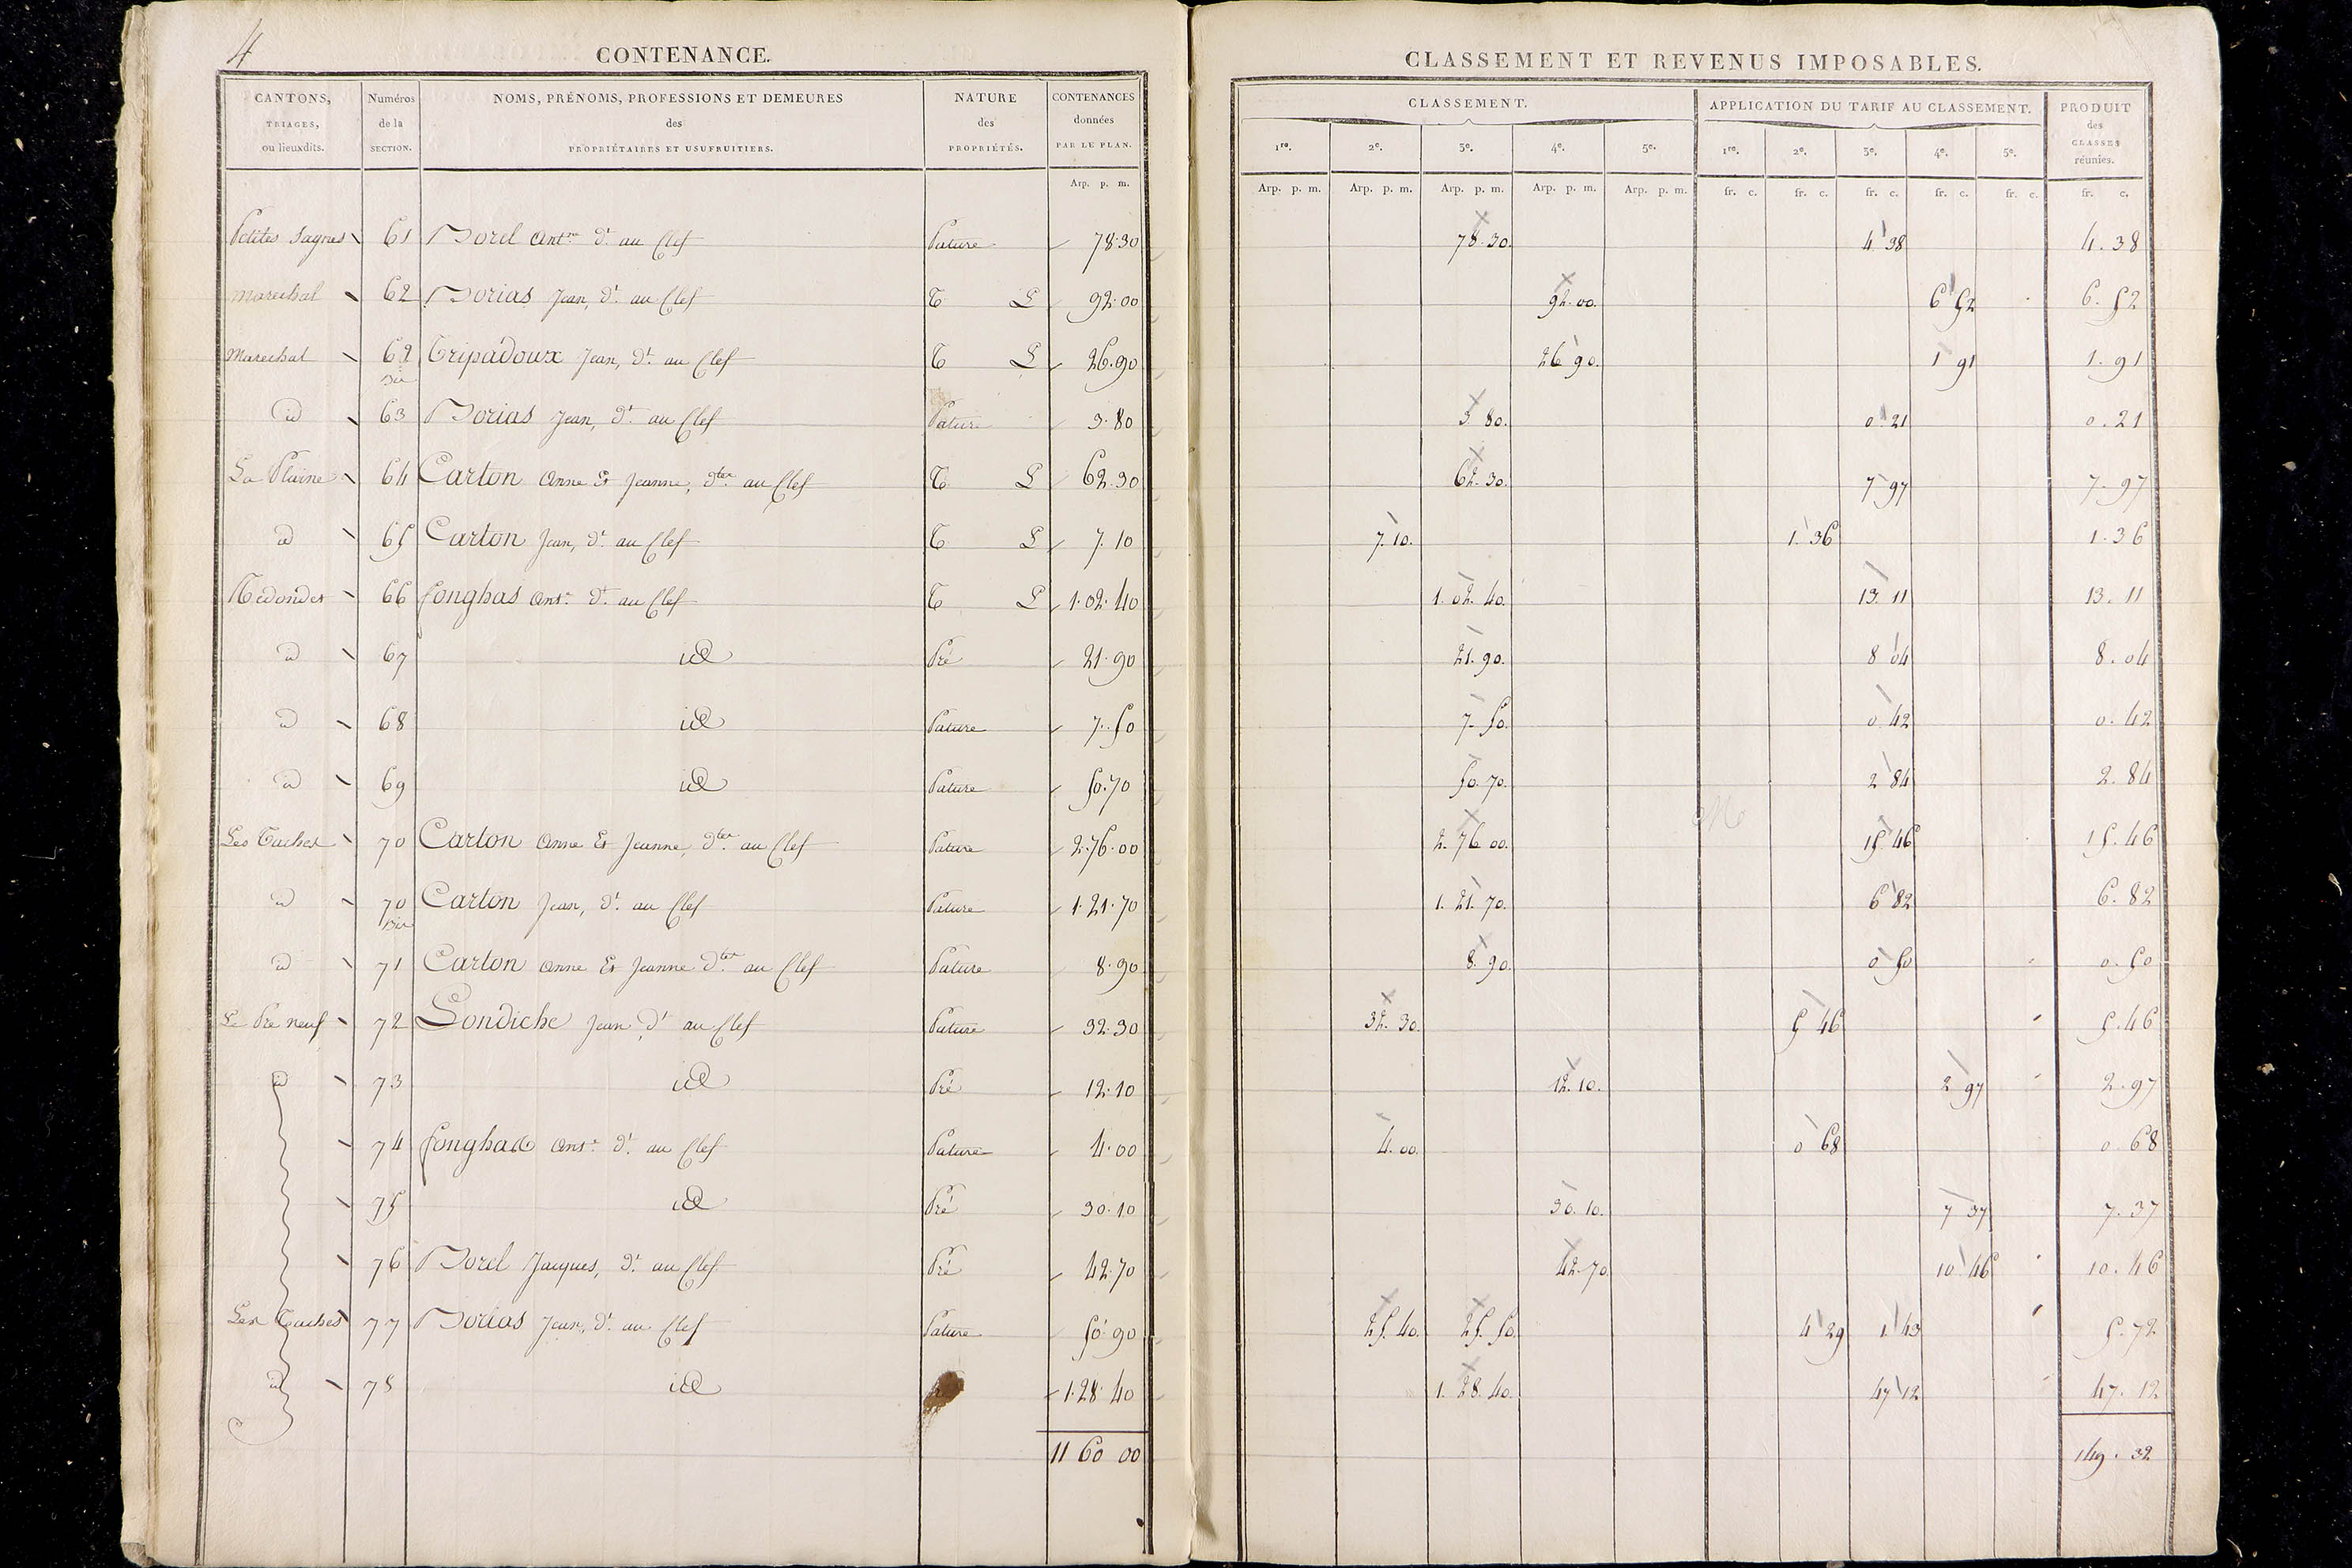 4
CONTENANCE.
CANTONS, TRIAGES, ou lieuxdits. | Numéros de la SECTION. | NOMS, PRÉNOMS, PROFESSIONS ET DEMEURES des PROPRIÉTAIRES ET USUFRUITIERS. | NATURE des PROPRIÉTÉS. | CONTENANCES données PAR LE PLAN.
Arp. p. m.
CLASSEMENT ET REVENUS IMPOSABLES.
CLASSEMENT. | APPLICATION DU TARIF AU CLASSEMENT. | PRODUIT des CLASSES réunies.
1re. | 2e. | 3e. | 4e. | 5e. | 1re. | 2e. | 3e. | 4e. | 5e.
Arp. p. m. | Arp. p. m. | Arp. p. m. | Arp. p. m. | Arp. p. m. | fr. c. | fr. c. | fr. c. | fr. c. | fr. c. | fr. c.
Petites Sagnes | 61 | Borel Antne dt au Clef | Pature | 78.30 | 78.30. | 4.38 | 4.38
Marechal | 62 | Borias Jean, dt au Clef | T L | 92.00 | 92.00. | 6 52 | 6.52
Marechal | 62 bis | Tripadoux Jean, dt au Clef | T L | 26.90 | 26 90. | 1 91 | 1.91
id | 63 | Borias Jean, dt au Clef | Pature | 3.80 | 3 80. | 0 21 | 0.21
La Plaine | 64 | Carton Anne Et Jeanne, dtes au Clef | T L | 62.30 | 62.30. | 7 97 | 7.97
id | 65 | Carton Jean, dt au Clef | T L | 7.10 | 7.10. | 1.36 | 1.36
Redondes | 66 | Jonghas Ant. dt au Clef | T L | 1.02.40 | 1.02.40. | 13.11 | 13.11
id | 67 | id | Pré | 21.90 | 21.90. | 8 04 | 8.04
id | 68 | id | Pature | 7.50 | 7.50. | 0.42 | 0.42
id | 69 | id | Pature | 50.70 | 50.70. | 2 84 | 2.84
Les Taches | 70 | Carton Anne Et Jeanne, dtes au Clef | Pature | 2.76.00 | 2.76 00. | 15.46 | 15.46
id | 70 bis | Carton Jean, dt au Clef | Pature | 1.21.70 | 1.21.70. | 6 82 | 6.82
id | 71 | Carton Anne Et Jeanne dtes au Clef | Pature | 8.90 | 8.90. | 0 50 | 0.50
Le Pré neuf | 72 | Londiche Jean, dt au Clef | Pature | 32.30 | 32.30. | 5 46 | 5.46
id | 73 | id | Pré | 12.10 | 12.10. | 2 97 | 2.97
74 | Jonghas Ant. dt au Clef | Pature | 4.00 | 4.00. | 0 68 | 0.68
75 | id | Pré | 30.10 | 30.10. | 7 37 | 7.37
76 | Borel Jacques, dt au Clef | Pré | 42.70 | 42.70. | 10 46 | 10.46
Les Taches | 77 | Borias Jean, dt au Clef | Pature | 50.90 | 25.40. | 25.50. | 4 29 | 1 43 | 5.72
id | 78 | id | 1.28.40 | 1.28.40. | 47 12 | 47.12
11 60 00 | 149.32